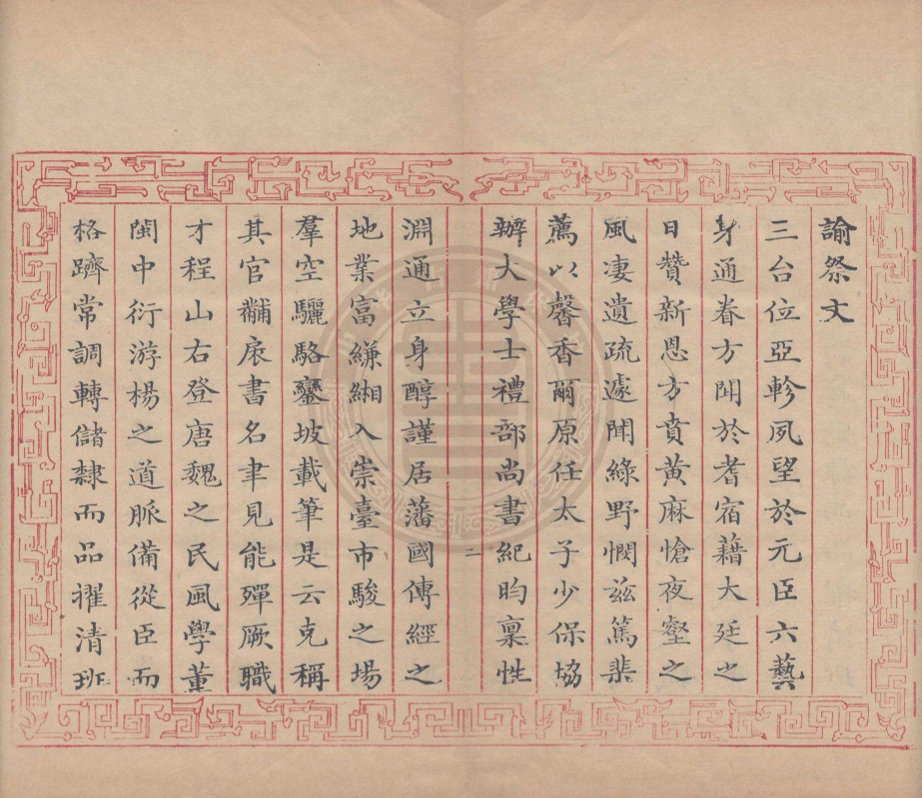 諭祭文
三台位亞軫夙望於元臣六藝
身通眷方聞於耆宿藉大廷之
日贊新恩方賁黃麻愴夜壑之
風淒遺疏遽聞綠野憫兹篤棐
薦以馨香爾原任太子少保協
辦大學士禮部尚書紀昀稟性
二
淵通立身醇謹居藩國傳經之
地業富縑緗入崇臺市駿之場
羣空驪駱鑾坡載筆是云克稱
其官黼扆書名聿見能殫厥職
才程山右登唐魏之民風學董
閩中衍游楊之道脈備從臣而
格躋常調轉儲隸而品擢清班